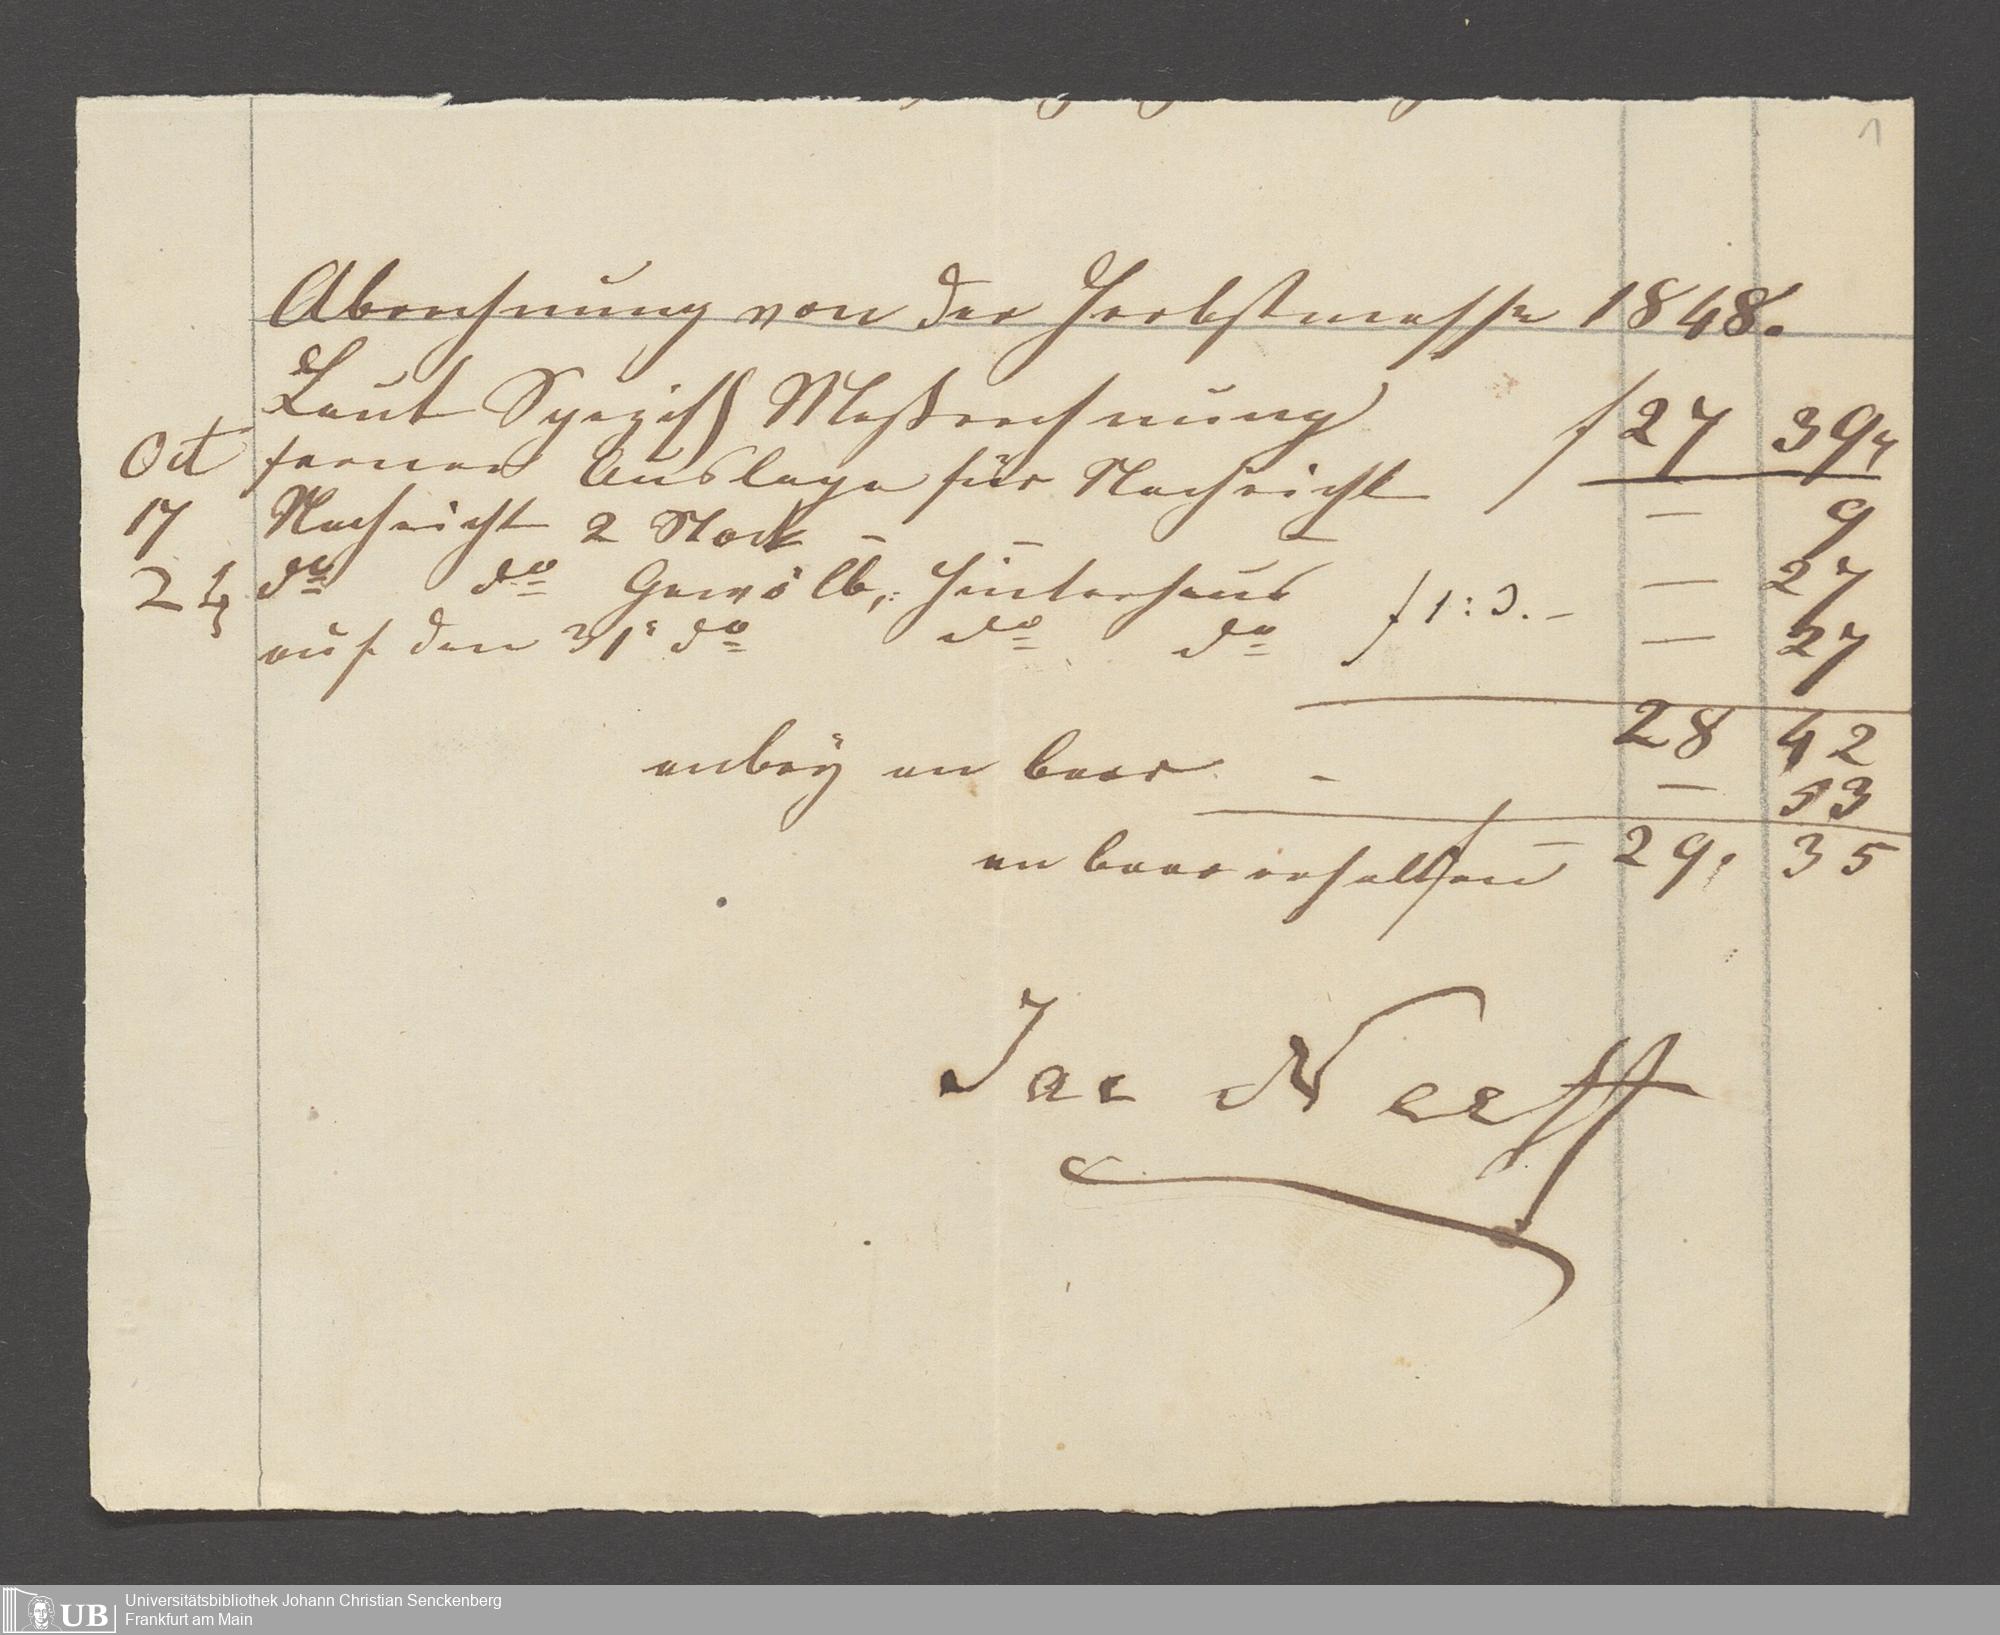 1
Abrechnung von der Herbstmesse 1848.
Laut Meßrechnung f 27 39
Oct ferner Auslage für Nachricht
17 Nachricht 2 Stock – – – – 9
24 do do Gewölb, Hinterhaus – 27
auf den 31 do do do f 1: 3. – – 27
28 42
anbey an baar – – 53
an baar erhalten f – 29, 35
Jac Neeff
UB
Universitätsbibliothek Johann Christian Senckenberg
Frankfurt am Main